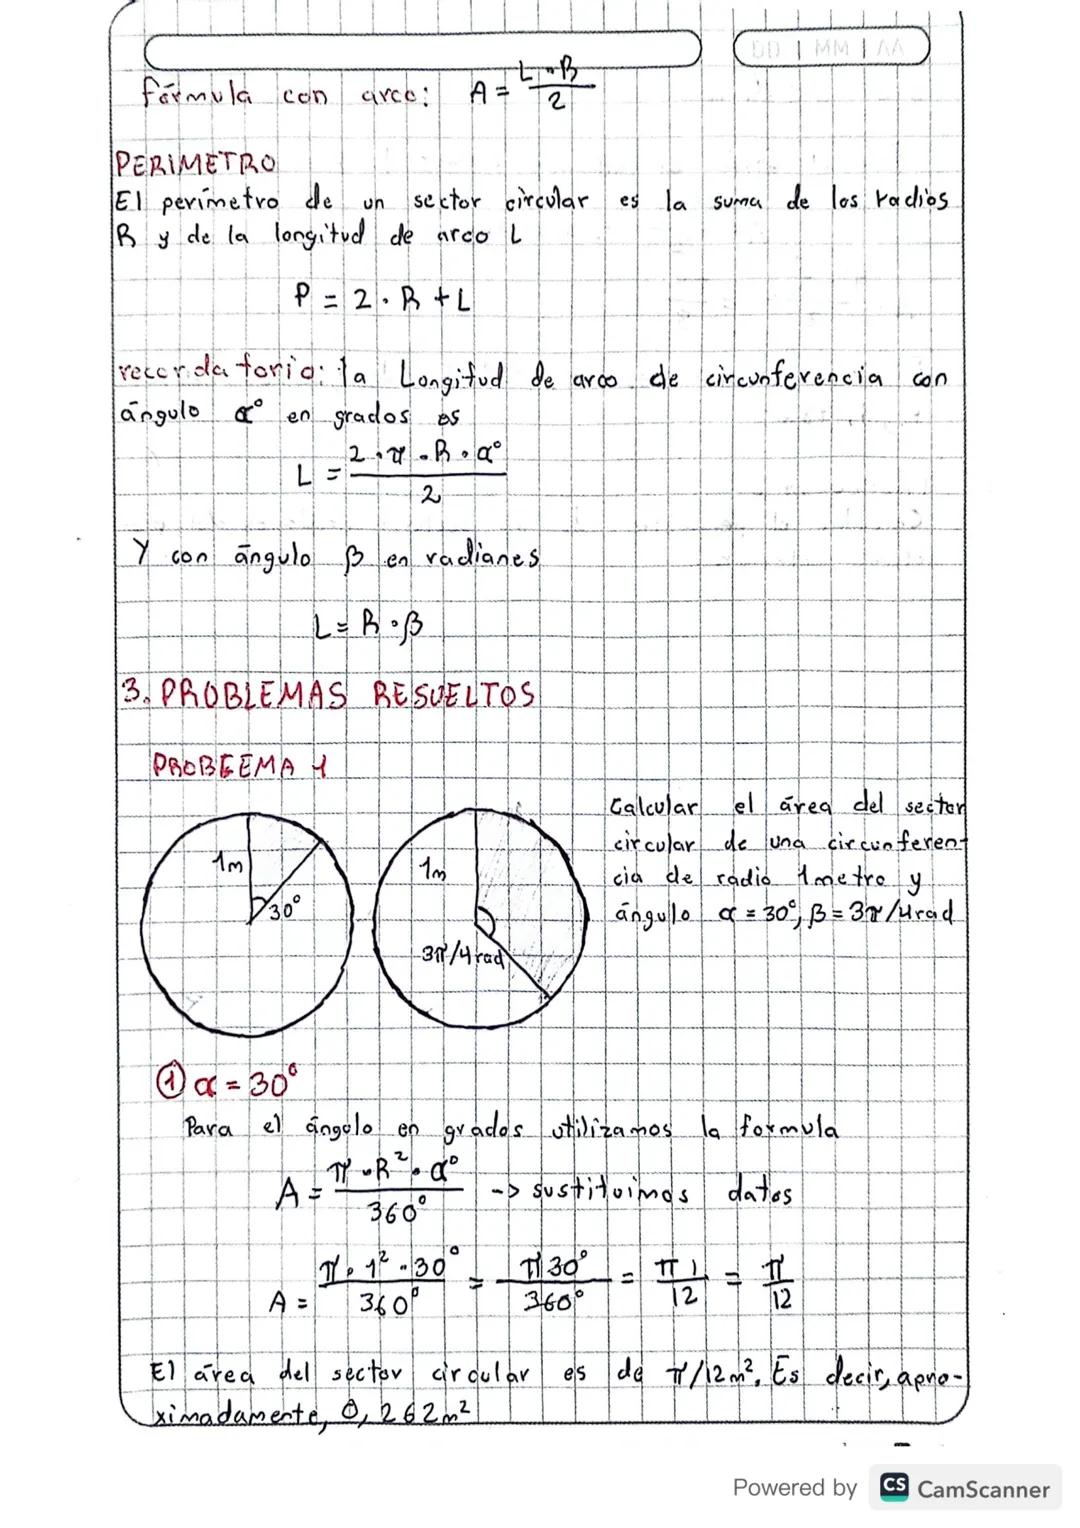 DD | MM | AA
fórmula con arco: A = L·R/2
PERIMETRO
El perímetro de un sector circular es la suma de los radios
R y de la longitud de arco L
P = 2·R + L
recordatorio: la Longitud de arco de circunferencia con
ángulo α° en grados es
L = 2·π·R·α°/2
Y con ángulo β en radianes
L = R·β
3. PROBLEMAS RESUELTOS
PROBLEMA 1
Calcular el área del sector
circular de una circunferen-
cia de radio 1metro y
ángulo α = 30°, β = 3π/4rad
1m
30°
1m
3π/4 rad
① α = 30°
Para el ángulo en grados utilizamos la formula
A = π·R²·α°/360° -> sustituimos datos
A = π·1²·30°/360° = π30°/360° = π1/12 = π/12
El área del sector circular es de π/12m². Es decir, apro-
ximadamente, 0,262m²
Powered by CS CamScanner